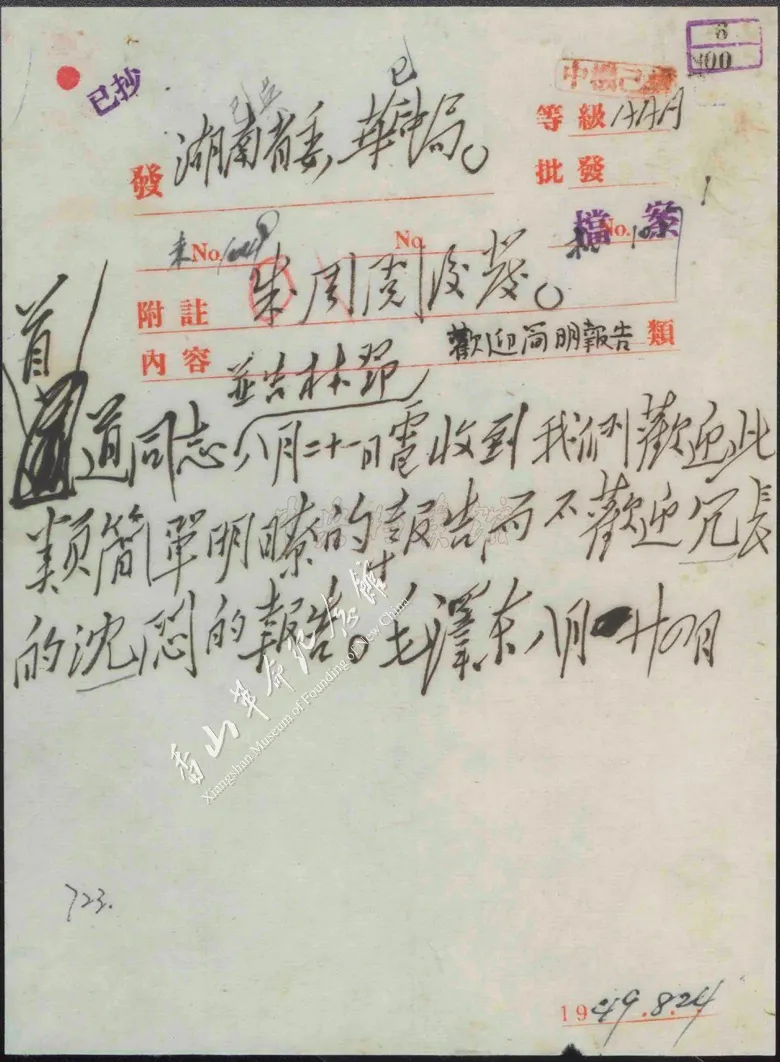 8
400
已抄
已
發 湖南省委,華中局。
等級 AAA
批發
檔案
來No.
No.
No.
附註 朱周閱後發。
內容
歡迎簡明報告 類
並告林鄧
首道同志八月二十一日電收到我們歡迎此
類簡單明瞭的報告而不歡迎冗長
的沈悶的報告。毛澤东八月廿四日
香山革命纪念馆
Xiangshan Museum of Founding of New China
723.
1949.8.24